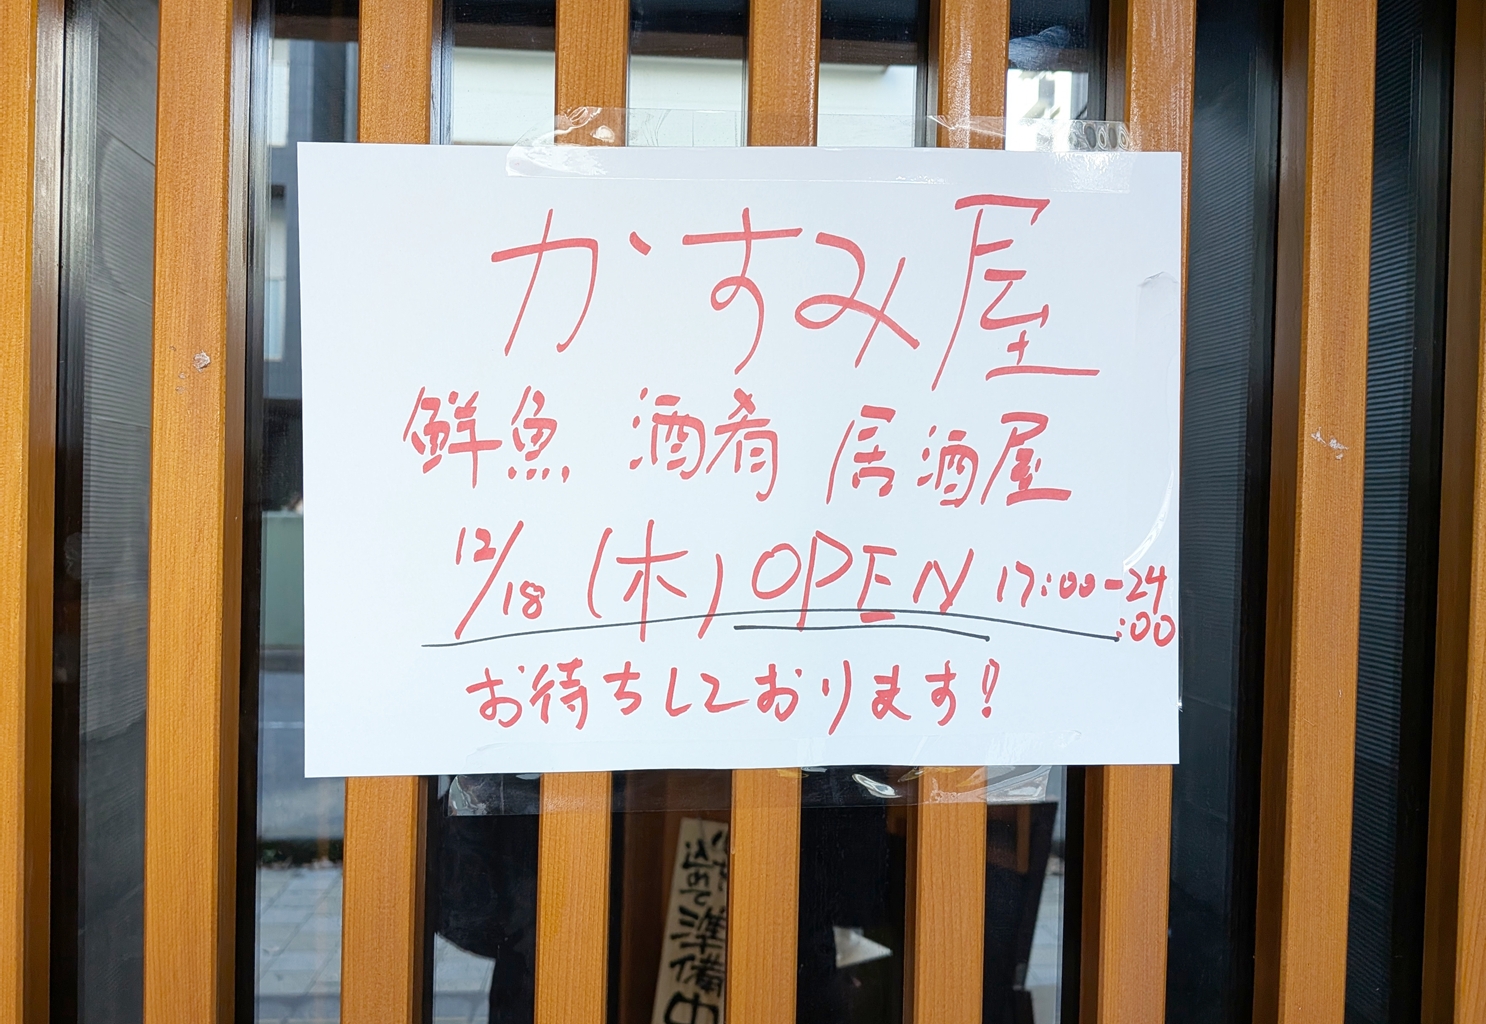 かすみ屋
鮮魚 酒肴 居酒屋
12/18 (木) OPEN 17:00-24:00
お待ちしております!
込めて準備中